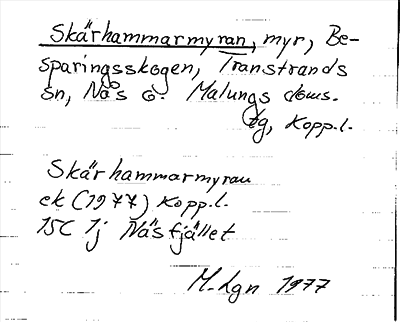 Skärhammarmyran, myr, Be-
sparingsskogen, Transtrands
sn, Nås o. Malungs doms.
tg, Kopp.l.
Skärhammarmyran
ek (1977) Kopp.l.
15C 1j Näsfjället
M. Lgn 1977